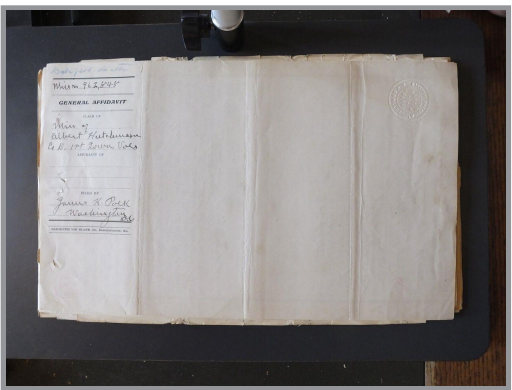 Minors 362,545
GENERAL AFFIDAVIT
CLAIM OF
Minors of
Albert
Co D. 1st Iowa Vols
AFFIDAVIT OF
FILED BY
James K. Polk
Washington
D.C.